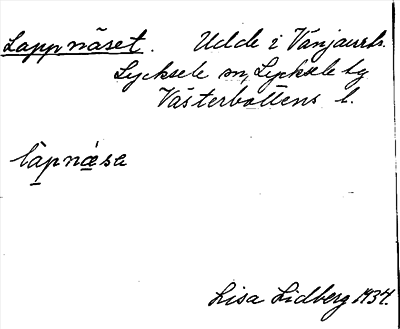 Lappnäset. Udde i Vänjaurtr.
Lycksele sn, Lycksele tg
Västerbottens l.
làpnǽsa
Lisa Lidberg 1934.